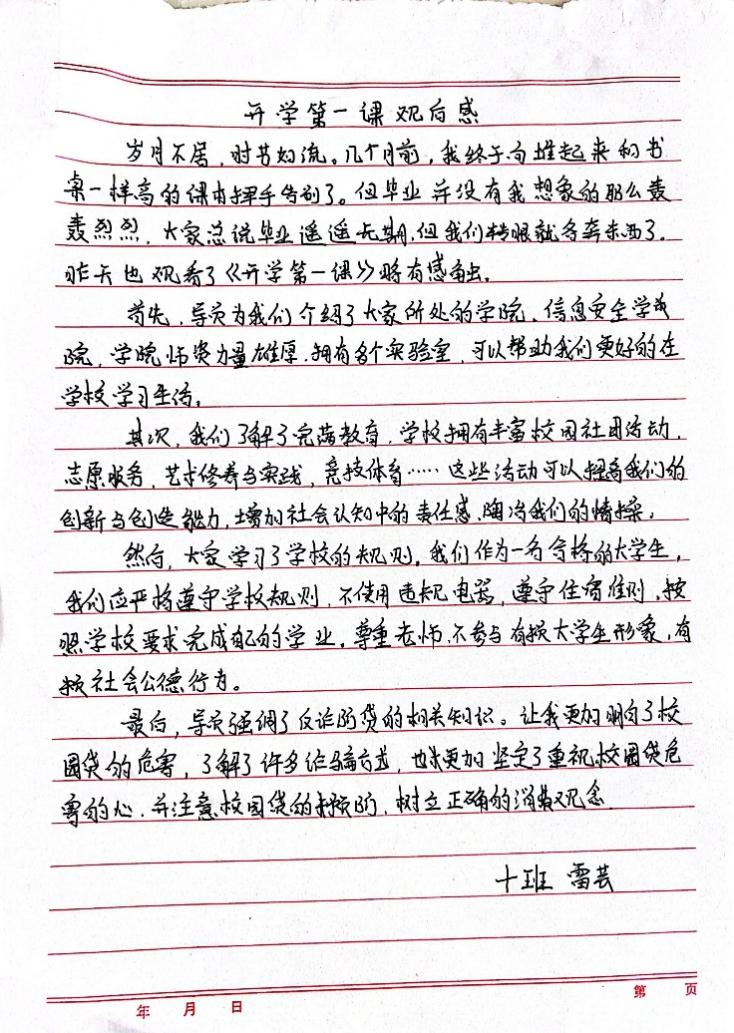 开学第一课观后感
岁月不居，时节如流。几个月前，我终于向堆起来和书
桌一样高的课本挥手告别了。但毕业并没有我想象的那么轰
轰烈烈，大家总说毕业遥遥无期，但我们转眼就各奔东西了。
昨天也观看了《开学第一课》略有感触。
首先，导员为我们介绍了大家所处的学院，信息安全学
院，学院师资力量雄厚，拥有多个实验室，可以帮助我们更好的在
学校学习生活。
其次，我们了解了完满教育，学校拥有丰富校园社团活动，
志愿服务，艺术修养与实践，竞技体育……这些活动可以提高我们的
创新与创造能力，增加社会认知中的责任感，陶冶我们的情操，
然后，大家学习了学校的规则，我们作为一名合格的大学生，
我们应严格遵守学校规则，不使用违规电器，遵守住宿准则，按
照学校要求完成自己的学业，尊重老师，不参与有损大学生形象，有
损社会公德行为。
最后，导员强调了反诈防贷的相关知识。让我更加明白了校
园贷的危害，了解了许多诈骗方式，也更加坚定了重视校园贷危
害的心，并注意校园贷的预防，树立正确的消费观念
十班 雷芸
年 月 日
第 页